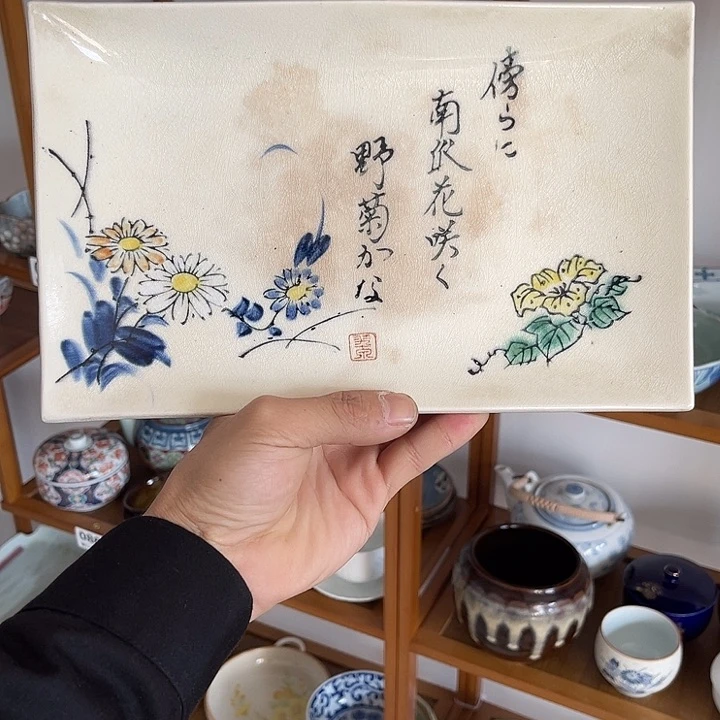 傍らに
南瓜花咲く
野菊かな